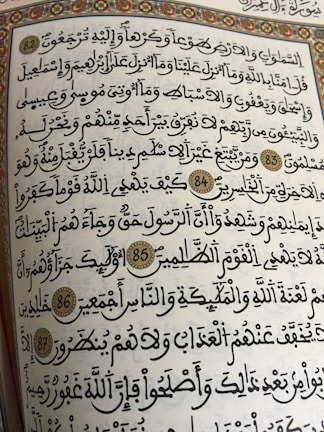 سورة آل عمران
السماوات والارض طوعا وكرها وإليه ترجعون 82
قل امنا بالله وما أنزل علينا وما أنزل على إبراهيم وإسماعيل
وإسحاق ويعقوب والاسباط وما أوتي موسى وعيسى
والنبيئون من ربهم لا نفرق بين أحد منهم ونحن له
مسلمون 83 ومن يبتغ غير الاسلام دينا فلن يقبل منه وهو
في الاخرة من الخاسرين 84 كيف يهدي الله قوما كفروا
بعد إيمانهم وشهدوا أن الرسول حق وجاءهم البينات
والله لا يهدي القوم الظالمين 85 أولئك جزاؤهم أن
عليهم لعنة الله والملائكة والناس أجمعين 86 خالدين
لا يخفف عنهم العذاب ولا هم ينظرون 87 إلا
تابوا من بعد ذالك وأصلحوا فإن الله غفور رحيم